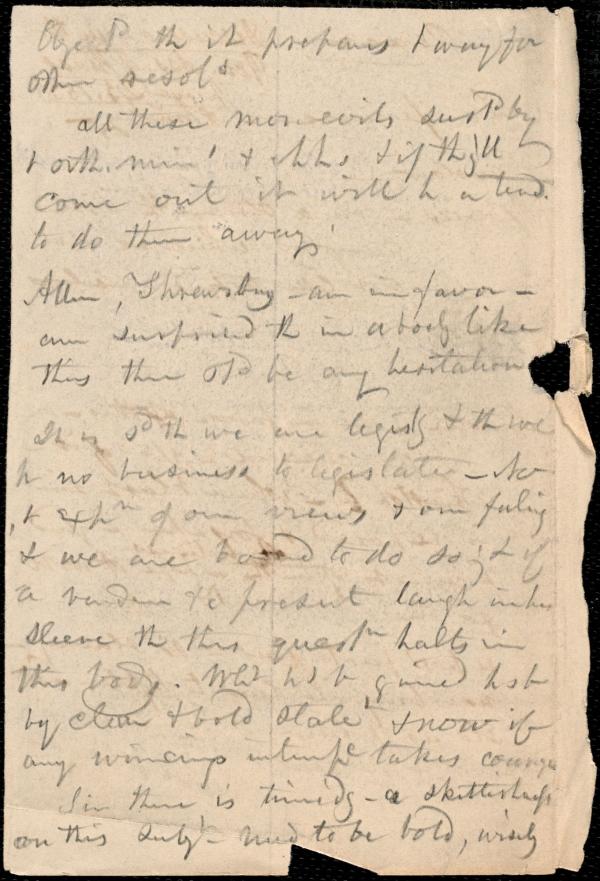 Obj.d th it prepares t way for
other resols
all these mon evils sustd by
t orth. mini & chhs & if they'll
come out it will h a tend.
to do them away.
Allen, Shrewsbury - am in favor -
am surprised th in a body like
this there shd be any hesitation
It is sd th we are legislg & th we
h no business to legislate - No
t expn of our views & our feelig
& we are bound to do so; & if
a were present laugh in his
sleeve th this questn halts in
this body. Wht hs b gained hs b
by clear & bold state & now if
any wincing takes courage
Sir there is timidy - a skittishness
on this subjt - need to be bold, wisely